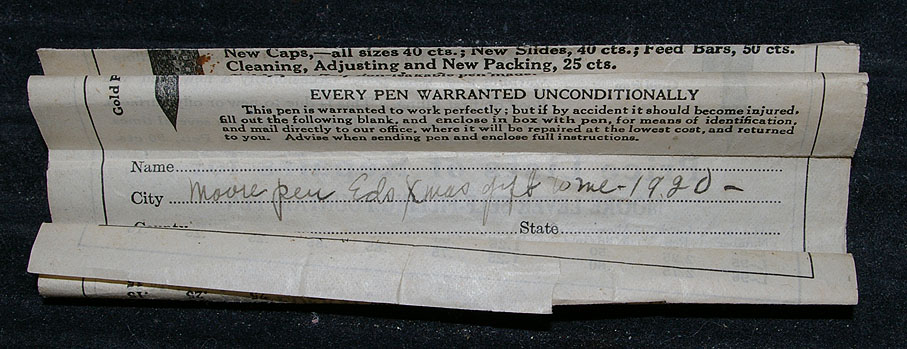 New Caps,—all sizes 40 cts.; New Slides, 40 cts.; Feed Bars, 50 cts.
Cleaning, Adjusting and New Packing, 25 cts.
Gold P
EVERY PEN WARRANTED UNCONDITIONALLY
This pen is warranted to work perfectly; but if by accident it should become injured,
fill out the following blank, and enclose in box with pen, for means of identification,
and mail directly to our office, where it will be repaired at the lowest cost, and returned
to you. Advise when sending pen and enclose full instructions.
Name
City Moore pen Eds Xmas gift to me - 1920 -
County State